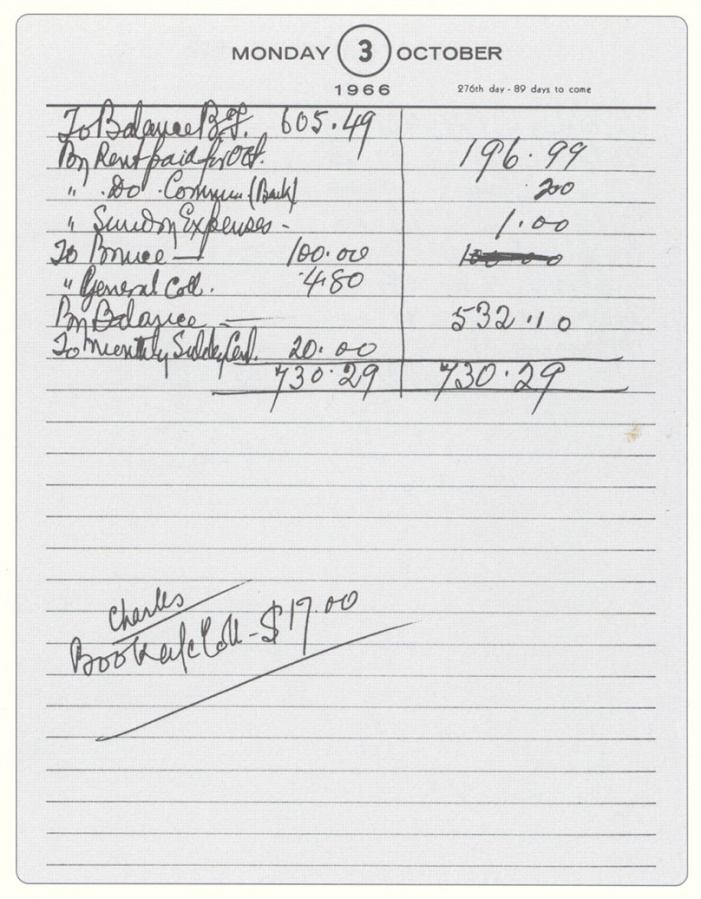 MONDAY 3 OCTOBER
1966 276th day - 89 days to come
To Balance B.F. 605.49
By Rent paid for Oct. 196.99
" Do . (Bank) .200
" Expenses - 1.00
To 100.00
" General Coll. .480
By Balance 532.10
To Monthly 20.00
730.29 730.29
Charles
Book a/c Coll - $17.00